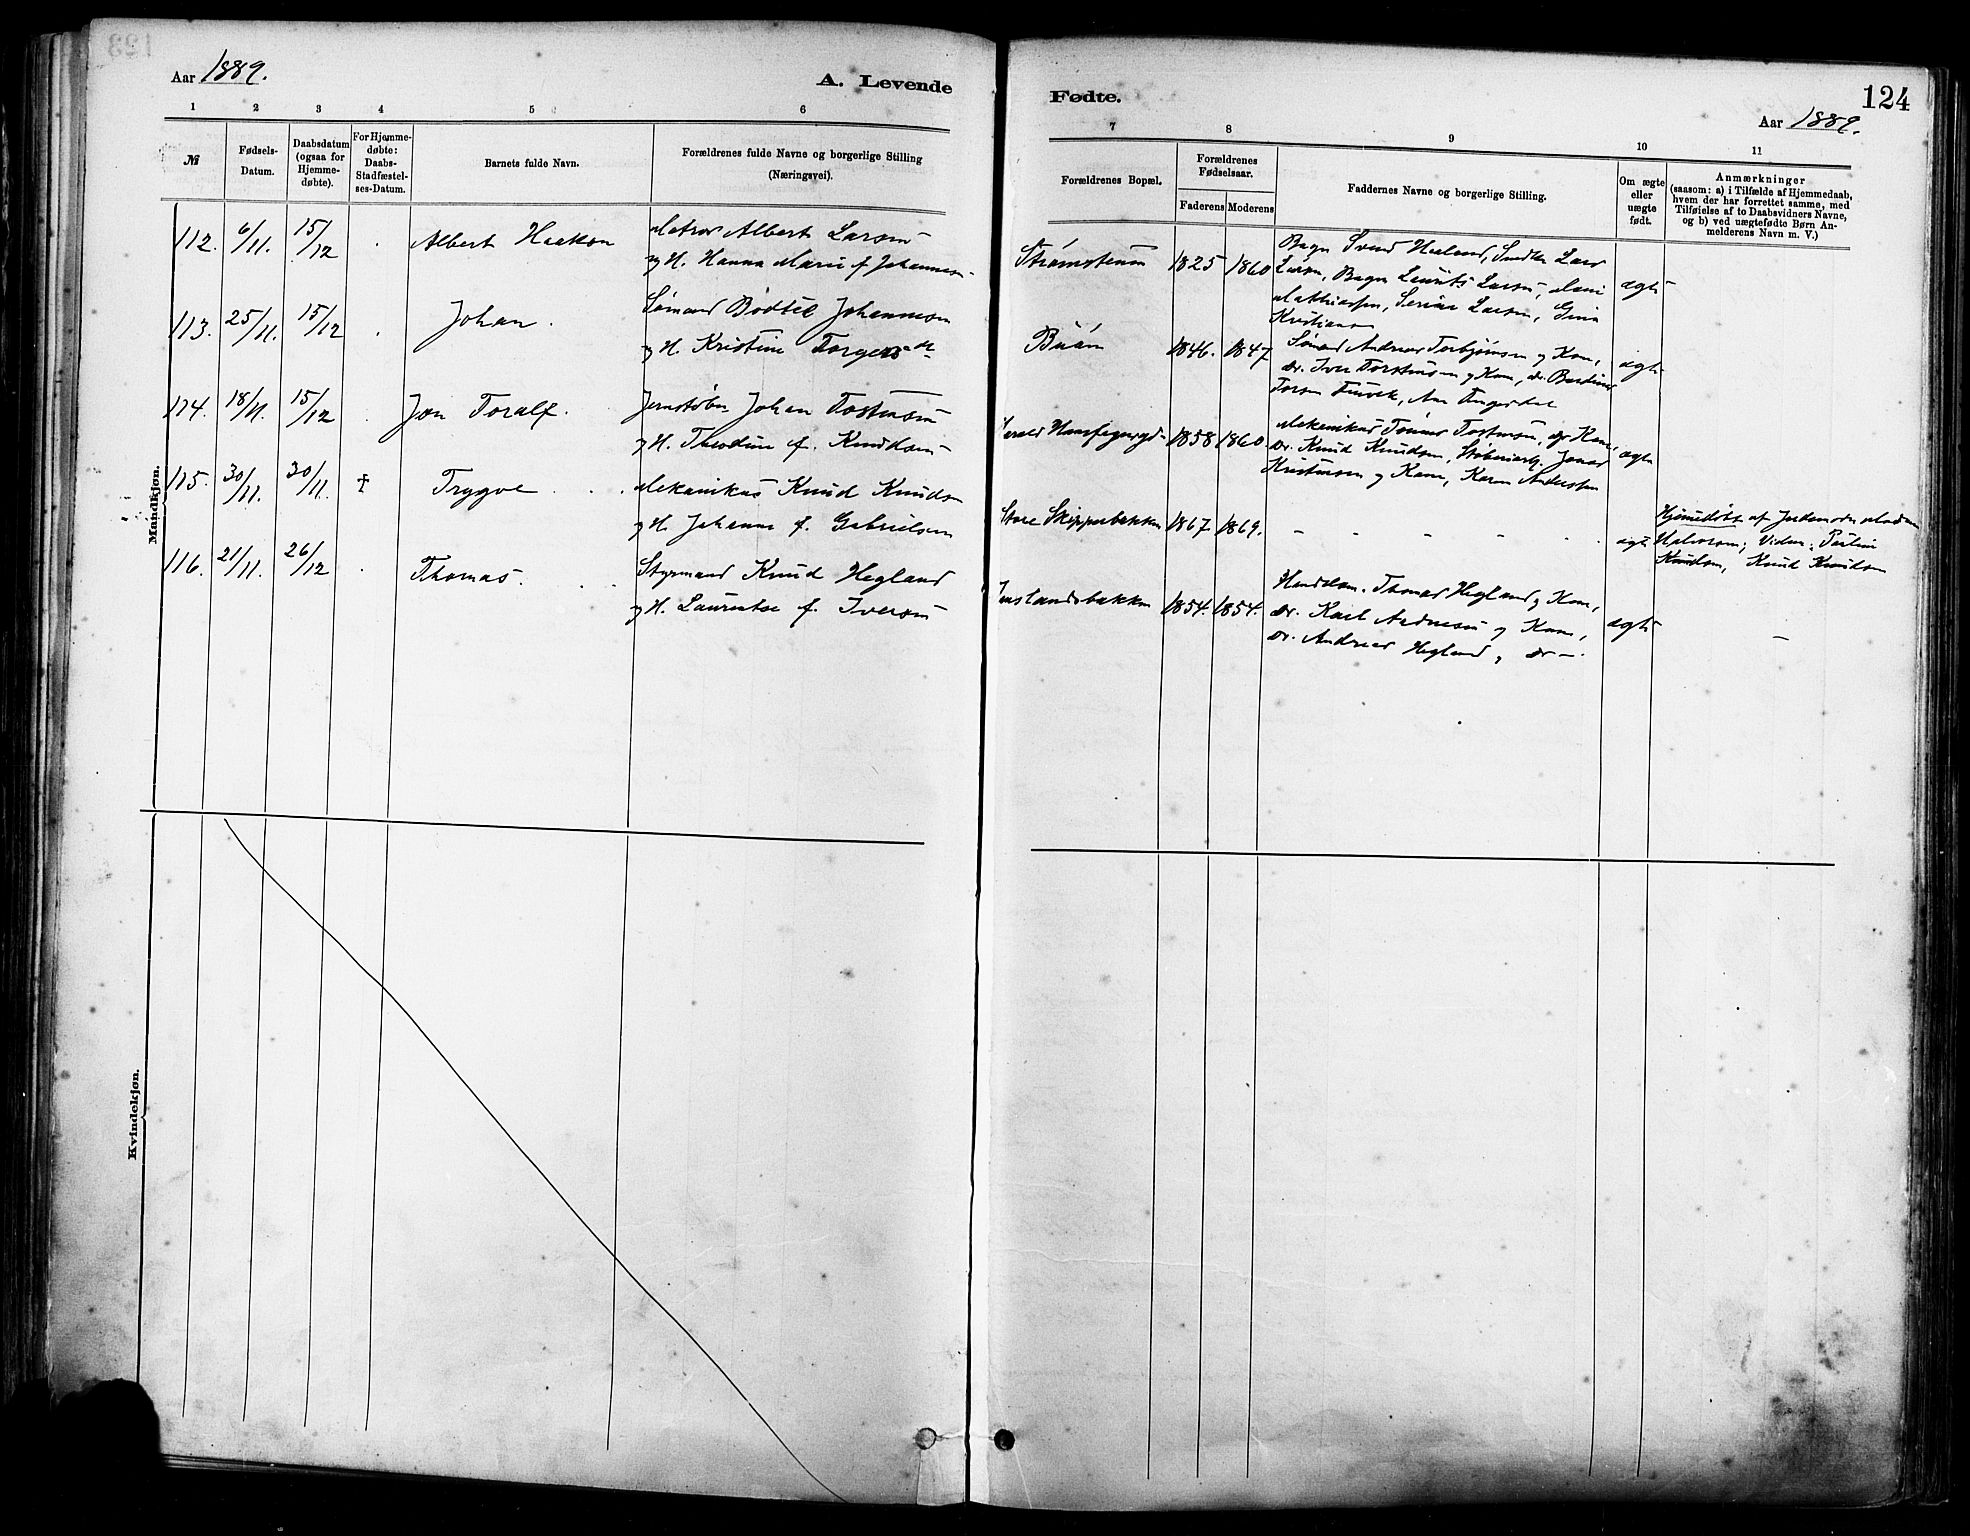 Aar 1889.
A. Levende
1 2 3 4 5 6
№
Fødsels-
Datum.
Daabsdatum
(ogsaa for
Hjemme-
døbte).
For Hjemme-
døbte:
Daabs-
Stadfæstel-
ses-Datum.
Barnets fulde Navn.
Forældrenes fulde Navne og borgerlige Stilling
(Næringsvei).
Mandkjøn.
112. 6/11. 15/12 . Albert Haakon
Matros Albert Larsen
og H. Hanna Marie f. Johannesen
113. 25/11. 15/12 . Johan .
Sømand Bødtel Johannesen
og H. Kristine Torgersen
114. 18/11. 15/12 . Jon Toralf .
Jernstøber Johan Tostensen
og H. Theodine f. Knudsen
115. 30/11. 30/11. † Trygve . .
Mekanikus Knud Knudsen
og H. Johanna f. Gabrielsen
116. 21/11. 26/12 . Thomas. .
Styrmand Knud Hegland
og H. Laurentse f. Iversen
Kvindekjøn.
Fødte.
124
Aar 1889.
7 8 9 10 11
Forældrenes Bopæl.
Forældrenes
Fødselsaar.
Faderens Moderens
Faddernes Navne og borgerlige Stilling.
Om ægte
eller
uægte
født.
Anmærkninger
(saasom: a) i Tilfælde af Hjemmedaab,
hvem der har forrettet samme, med
Tilføielse af to Daabsvidners Navne,
og b) ved uægtefødte Børn An-
melderens Navn m. V.)
Strømstenen 1825 1860
Bagr Svend Haaland, Lars
Larsen, Bagr Laurits Larsen,
Mathiassen, Serine Larsen, Gina
Kristiansen
ægte
1846. 1847
Sømd Andreas Torbjørnsen og Kone,
do. Iver Torstensen og Kone, do.
ægte
1858 1860.
Mekanikus Tostensen, og Kone,
do. Knud Knudsen, Jonas
Kristensen og Kone, Karen Andersen
ægte
Store Skipperbakken 1867. 1869. – – – – .
ægte
Hjemmedøbt af Jordemoder Madam
Halvorsen; Vidner:
Knudsen, Knud Knudsen
1854. 1854.
Handelsm. Thomas Hegland og Kone,
do. Karl og Kone,
do. Andreas Hegland, do –
ægte
–